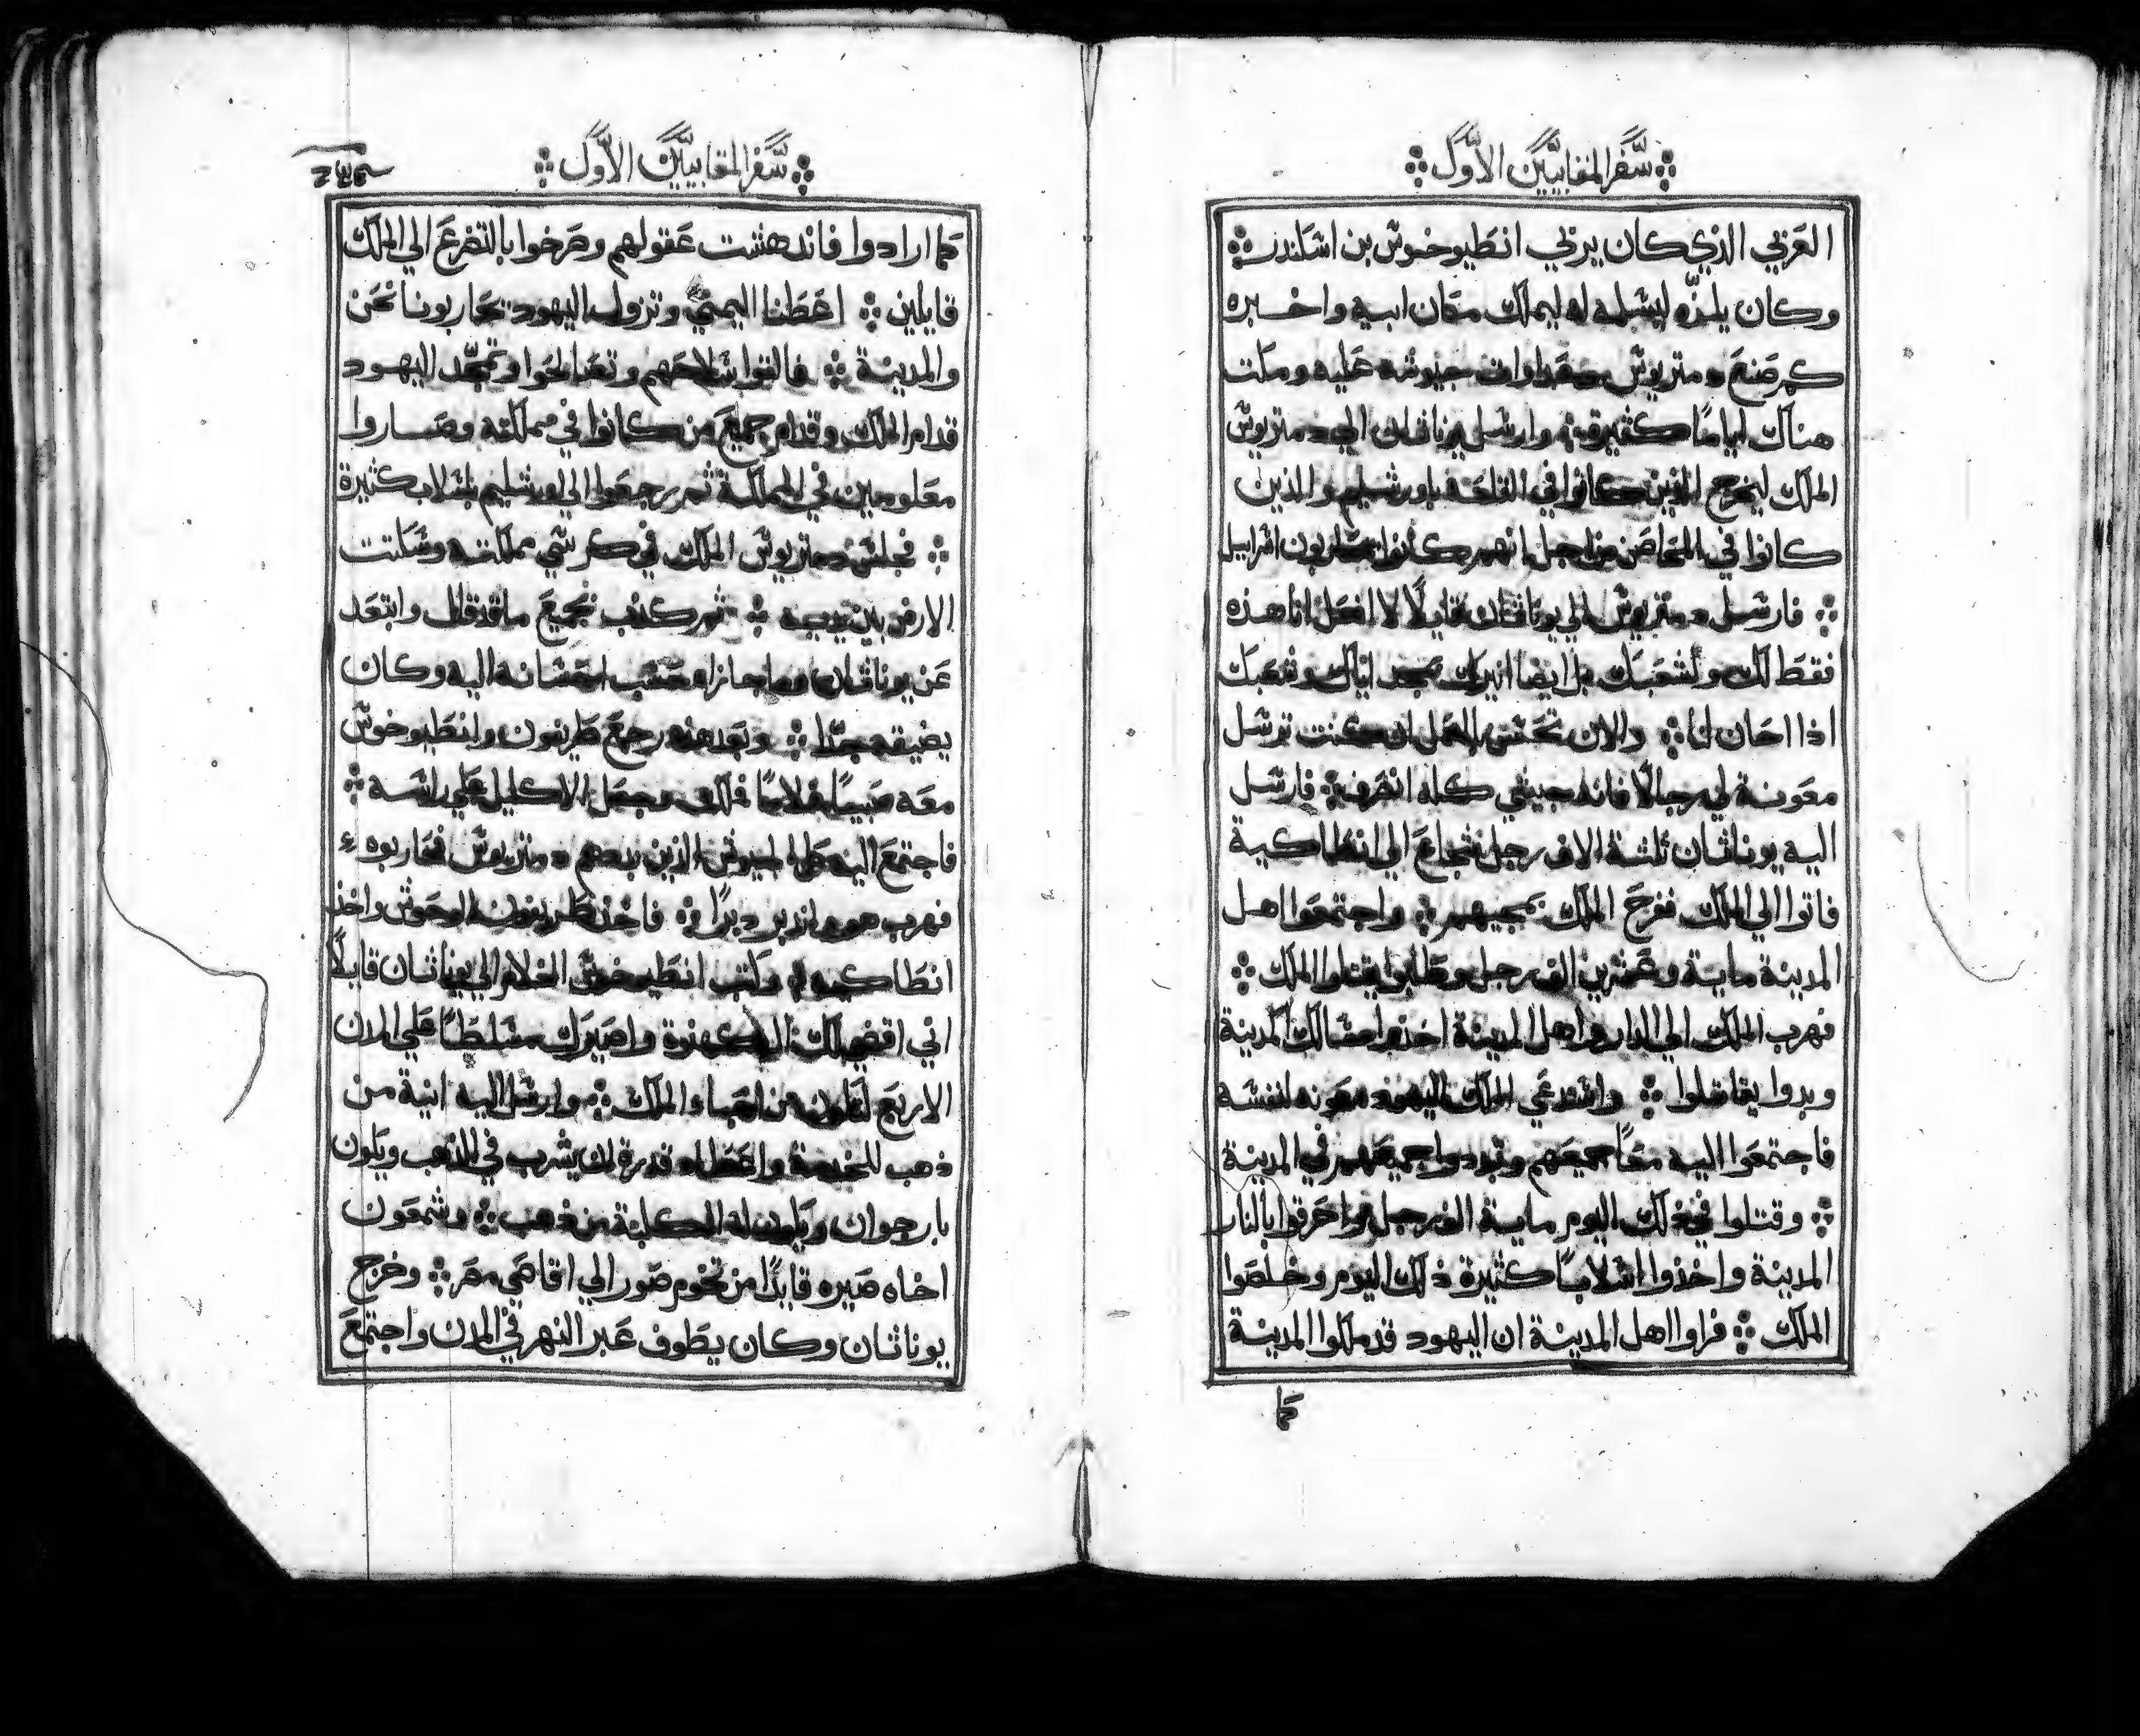 سفر المقابيين الاول
العربي الذي كان يربي انطيوخوس بن اسكندر
وكان يلزه ليسلمه له ليملك مكان ابيه واخبره
كم صنع دمتريوس وعداوات جيوشه عليه ومكث
هناك اياما كثيرة وارسل يوناثان الي دمتريوس
الملك ليخرج الذين كانوا في القلعة باورشليم والذين
كانوا في المحاصن من اجل انهم كانوا يحاربون اسراييل
فارسل دمتريوس الي يوناثان قايلا لا افعل انا هذه
فقط لك ولشعبك بل ايضا ازيدك مجد اياك وشعبك
اذا احان لنا والان تحسن العمل ان كنت ترسل
معونة لي رجالا فانه جيشي كله انصرف فارسل
اليه يوناثان ثلثة الاف رجل شجاع الي انطاكية
فاتوا الي الملك ففرح الملك بمجيهم واجتمعوا اهل
المدينة ماية وعشرين الف رجل وطلبوا يقتلوا الملك
فهرب الملك الي الدار واهل المدينة اخذوا مسالك المدينة
وبدوا يقاتلوا واستدعي الملك اليهود معونه لنفسه
فاجتمعوا اليه معا جميعهم وتبددوا جميعهم في المدينة
وقتلوا في ذلك اليوم ماية الف رجل واحرقوا بالنار
المدينة واخذوا اسلابا كثيرة ذلك اليوم وخلصوا
الملك فراوا اهل المدينة ان اليهود قد ملكوا المدينة
كما
سفر المقابيين الاول
كما ارادوا فاندهشت عقولهم وصرخوا بالتضرع الي الملك
قايلين اعطنا اليمني وتزول اليهود تحاربونا نحن
والمدينة فالقوا سلاحهم وتصالحوا وتمجد اليهود
قدام الملك وقدام جميع من كانوا في مملكته وصاروا
معلومين في المملكة ثم رجعوا الي اورشليم باسلاب كثيرة
فجلس دمتريوس الملك في كرسي مملكته وسكتت
الارض بين يديه ثم كذب بجميع ما قد قال وابتعد
عن يوناثان وما جازاه حسب احسانه اليه وكان
يضيقه جدا وبعد هذه رجع طريفون وانطيوخوس
معه صبيا غلاما فملك وجعل الاكليل علي راسه
فاجتمع اليه كل الجيوش الذين بددهم دمتريوس فحاربوه
فهرب هو واندبر دبرا فاخذ طريفون الوحوش واخذ
انطاكيه وكتب انطيوخوس الغلام الي يوناثان قايلا
اني اقضي لك الكهنوة واصيرك مسلطا علي المدن
الاربع لتكون من احباء الملك وارسل اليه انية من
ذهب للخدمة واعطاه قدرة ان يشرب في الذهب ويكون
بارجوان ويكون له الكلبة من ذهب وشمعون
اخاه صيره قايدا من تخوم صور الي اقاصي مصر وخرج
يوناثان وكان يطوف عبر النهر في المدن واجتمع